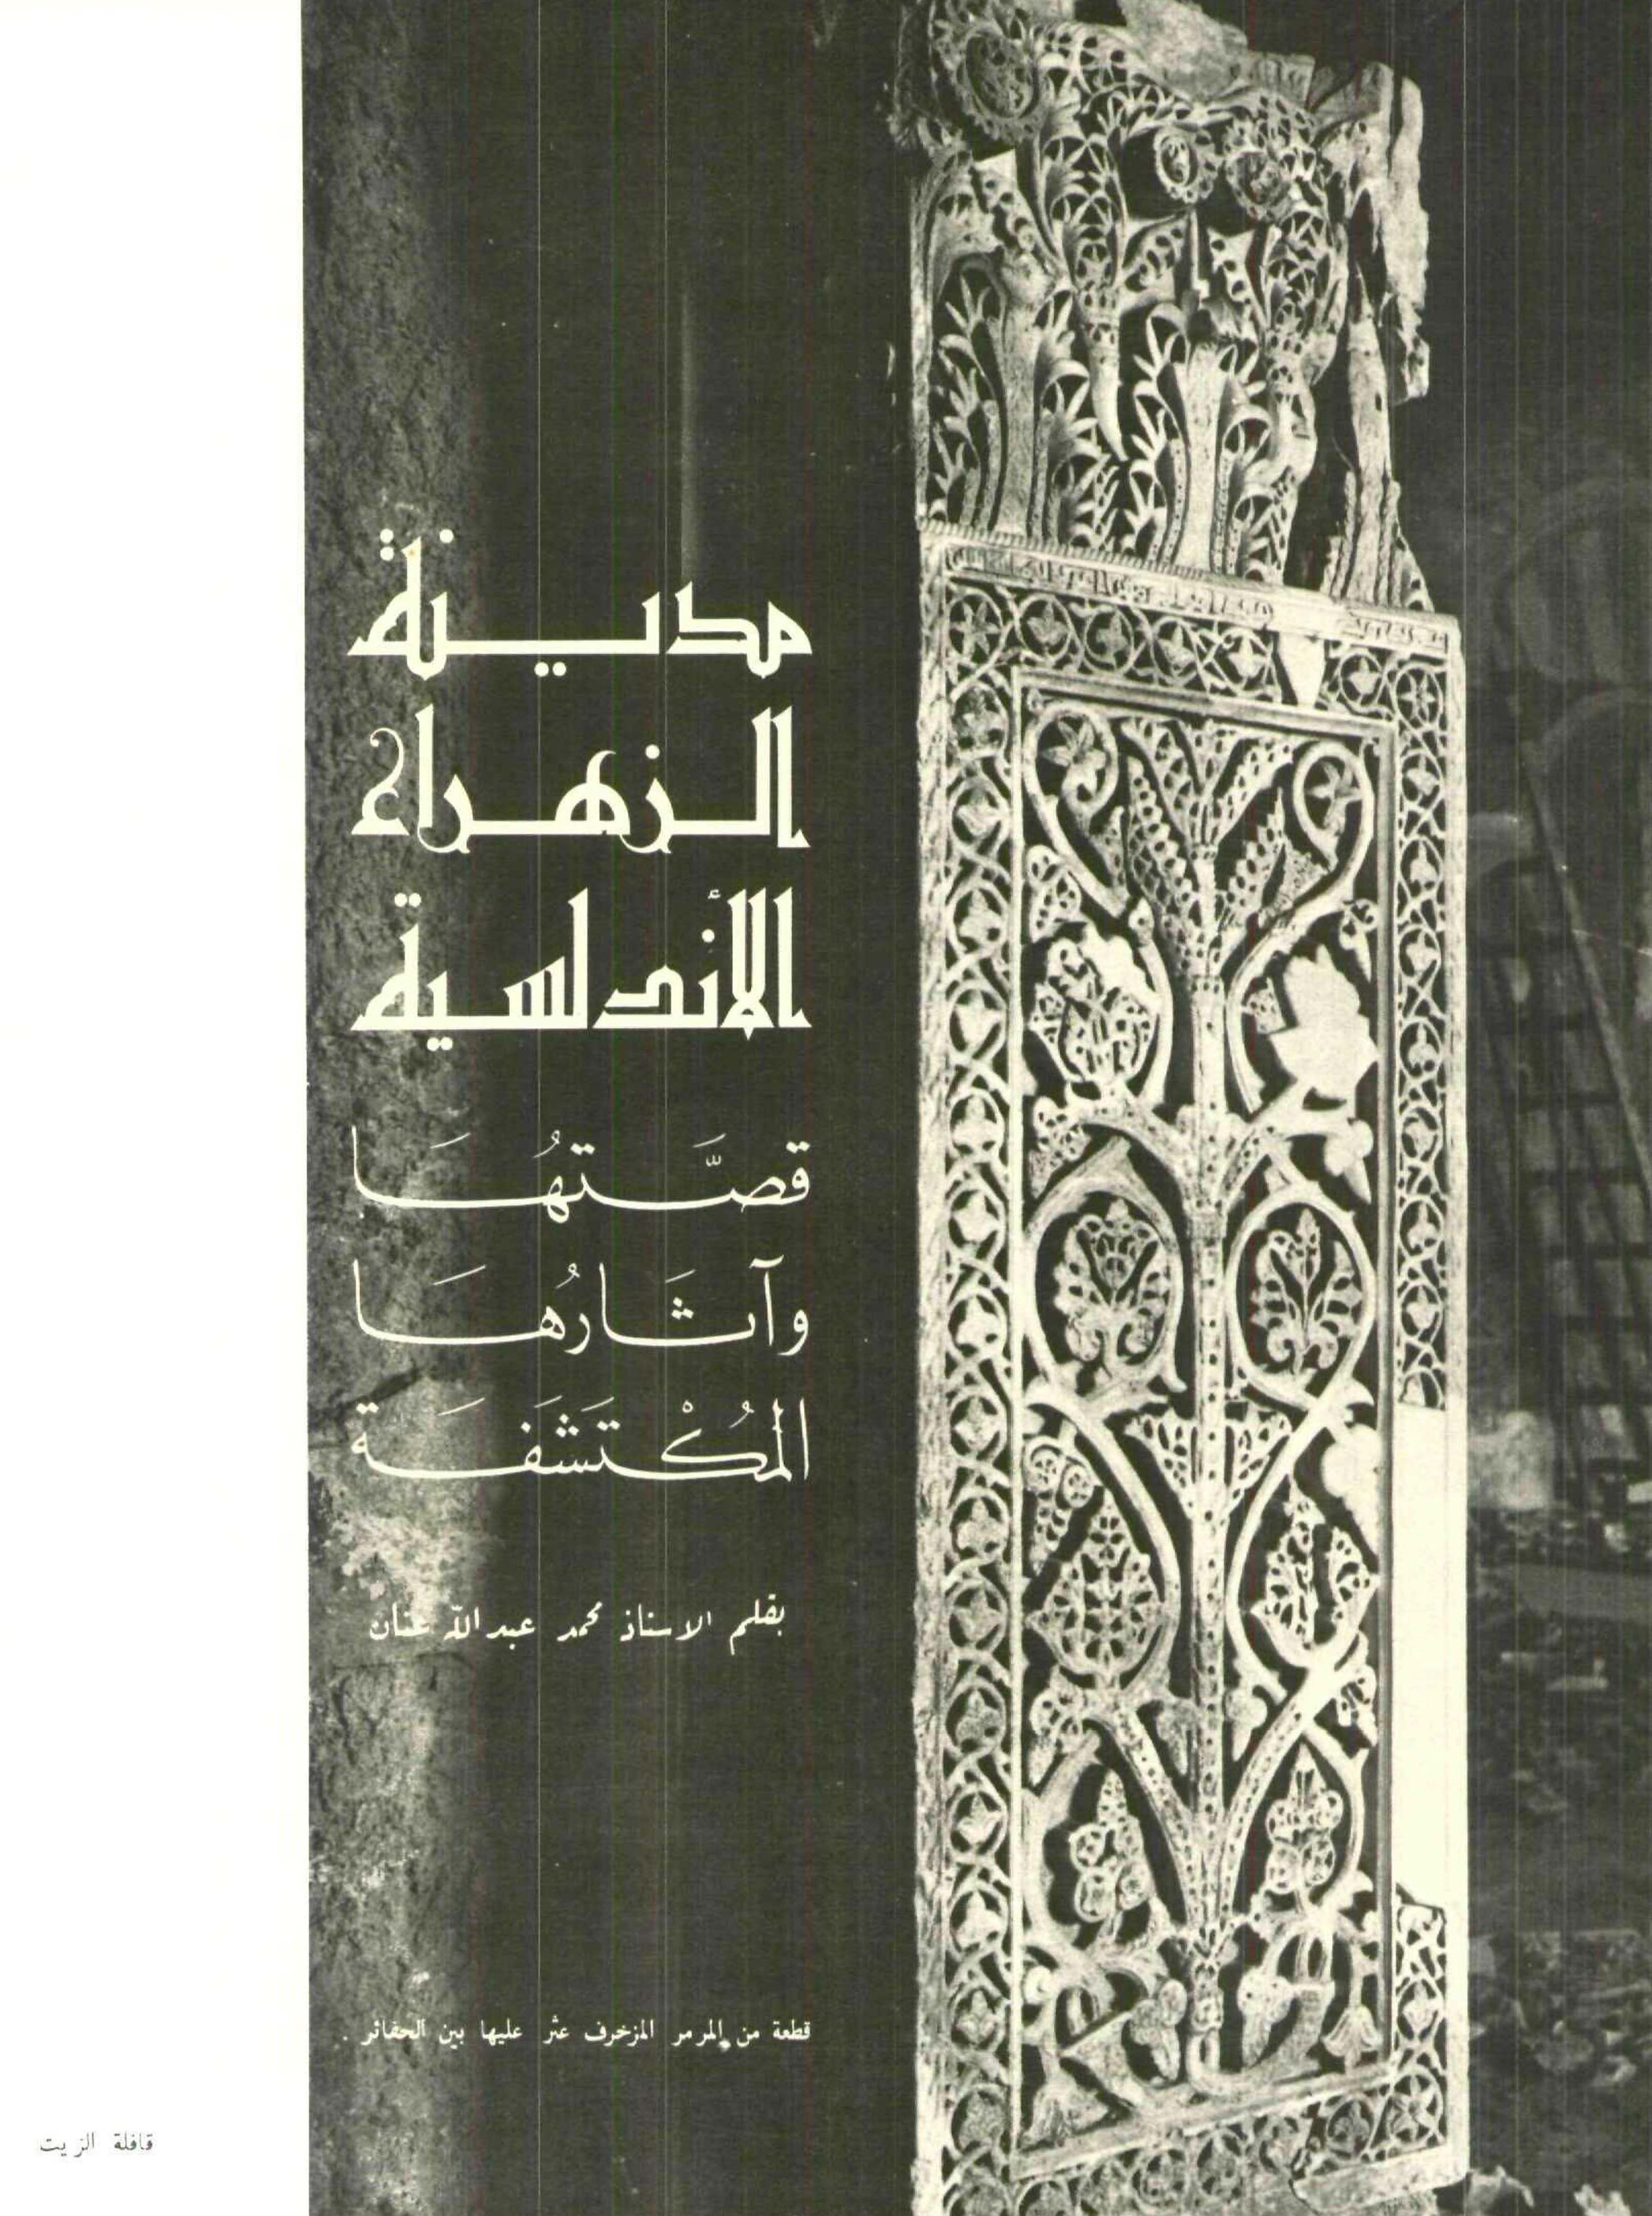 مدينة
الزهراء
الأندلسية
قصَّتهُا
وآثَارُها
المُكْتَشَفَة
بقلم الاستاذ محمد عبد الله عنان
قطعة من المرمر المزخرف عثر عليها بين الحفائر .
قافلة الزيت